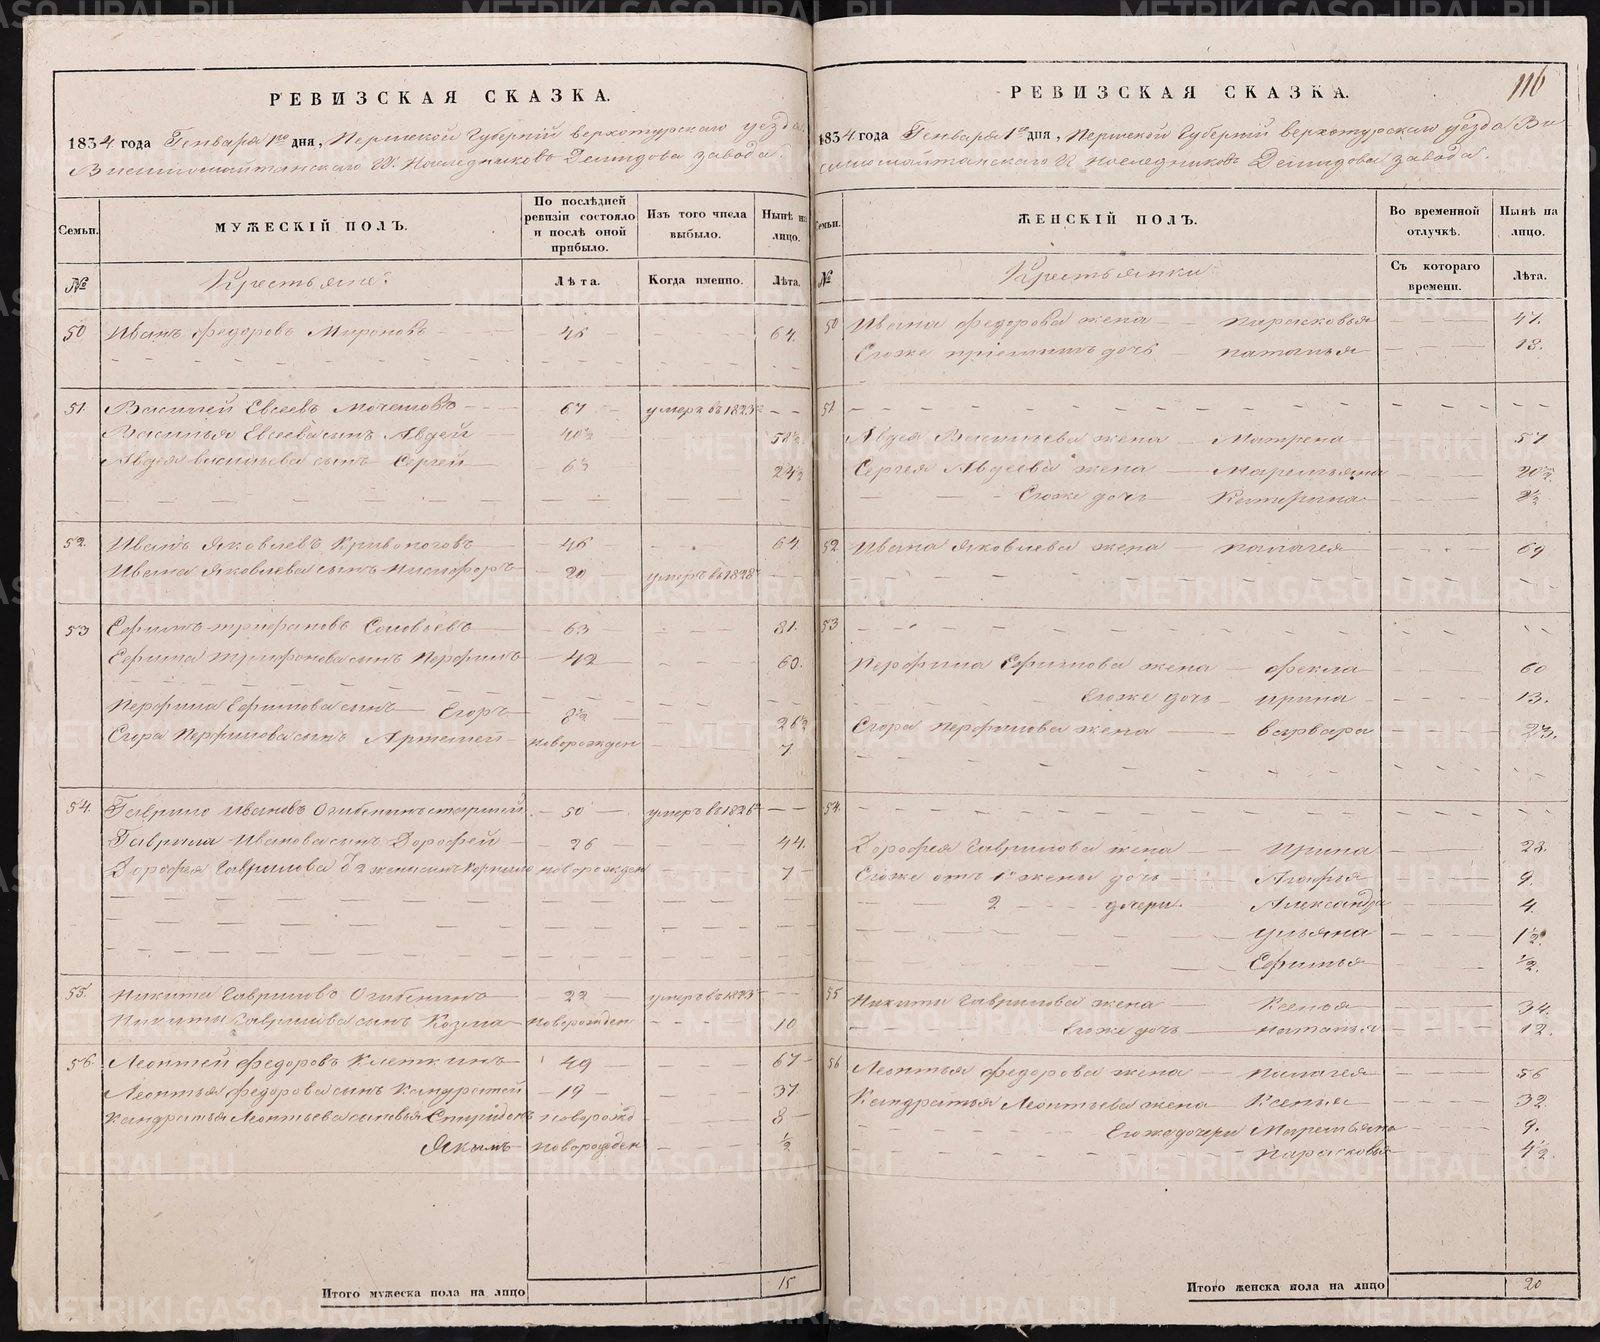 РЕВИЗСКАЯ СКАЗКА.
1834 года Генваря 1го дня, Пермской Губернiи верхотурскаго уезда
Висимошайтанскаго Г. Носледниковъ Демидова завода.
Семьи.
МУЖЕСКІЙ ПОЛЪ.
По послѣдней ревизіи состояло и послѣ оной прибыло.
Изъ того числа выбыло.
Нынѣ на лицо.
№
Крестьяне:
Лѣта.
Когда именно.
Лѣта.
50 Иванъ федоровъ Мироновъ 46 64.
51. Василей Евсеевъ 67 умеръ въ 1823
Василья Евсеева сынъ Авдей 40½ 58½
Авдея васильева сынъ Сергей 6½ 24½
52. Иванъ Яковлевъ Кривоноговъ 46 64
Ивана Яковлева сынъ Никифоръ 20 умеръ въ 1828
53 Ефимъ трифановъ Соловьевъ 63 81.
Ефима трифонова сынъ Перфилъ 42 60.
Перфила Ефимова сынъ Егоръ 8½ 26½
Егора Перфилова сынъ Артемей новорожден 7
54. Гаврило Ивановъ Огибенинъ старшей 50 умеръ въ 1826
Гаврила Иванова сынъ Дорофей 26 44.
Дорофея Гаврилова 2 жены сынъ Корнило новорожден 7
55. Никита Гавриловъ Огибенинъ 22 умеръ въ 1823
Никиты Гаврилова сынъ Козма новорожден 10
56. Леонтей федоровъ Клепкинъ 49 67
Леонтья федорова сынъ Кандратей 19 37
Кандратья Леонтьева сыновья Спиридонъ новорожд 8
Якимъ новорожден ½
Итого мужеска пола на лицо 15
116
РЕВИЗСКАЯ СКАЗКА.
1834 года Генваря 1го дня, Пермской Губернiи верхотурскаго уезда Ви
симошайтанскаго Г Носледниковъ Демидова завода.
Семьи.
ЖЕНСКІЙ ПОЛЪ.
Во временной отлучкѣ.
Нынѣ на лицо.
№
Крестьянки
Съ котораго времени.
Лѣта.
50 Ивана федорова жена Парасковья 47.
Егоже дочь наталья 18.
51.
Авдея Васильева жена Матрена 57
Сергея Авдеева жена Маремьяна 20½.
Егоже дочь Катерина 2½
52 Ивана Яковлева жена палагея 69
53
Перфила Ефимова жена фекла 60
Егоже дочь ирина 13.
Егора Перфилова жена варвара
54.
Дорофея Гаврилова жена Ирина 23.
Егоже отъ 1й жены дочь Агафья 9.
2 дочери Александра 4.
ульяна 1½.
Ефимья ½.
55 Никиты Гаврилова жена Ксенья 34.
Егоже дочь наталья 12.
56 Леонтья федорова жена палагея 56
Кандратья Леонтьева жена Ксенья 32
Егоже дочери Маремьяна 9.
Парасковья 4½.
Итого женска пола на лицо 20
METRIKI.GASO-URAL.RU